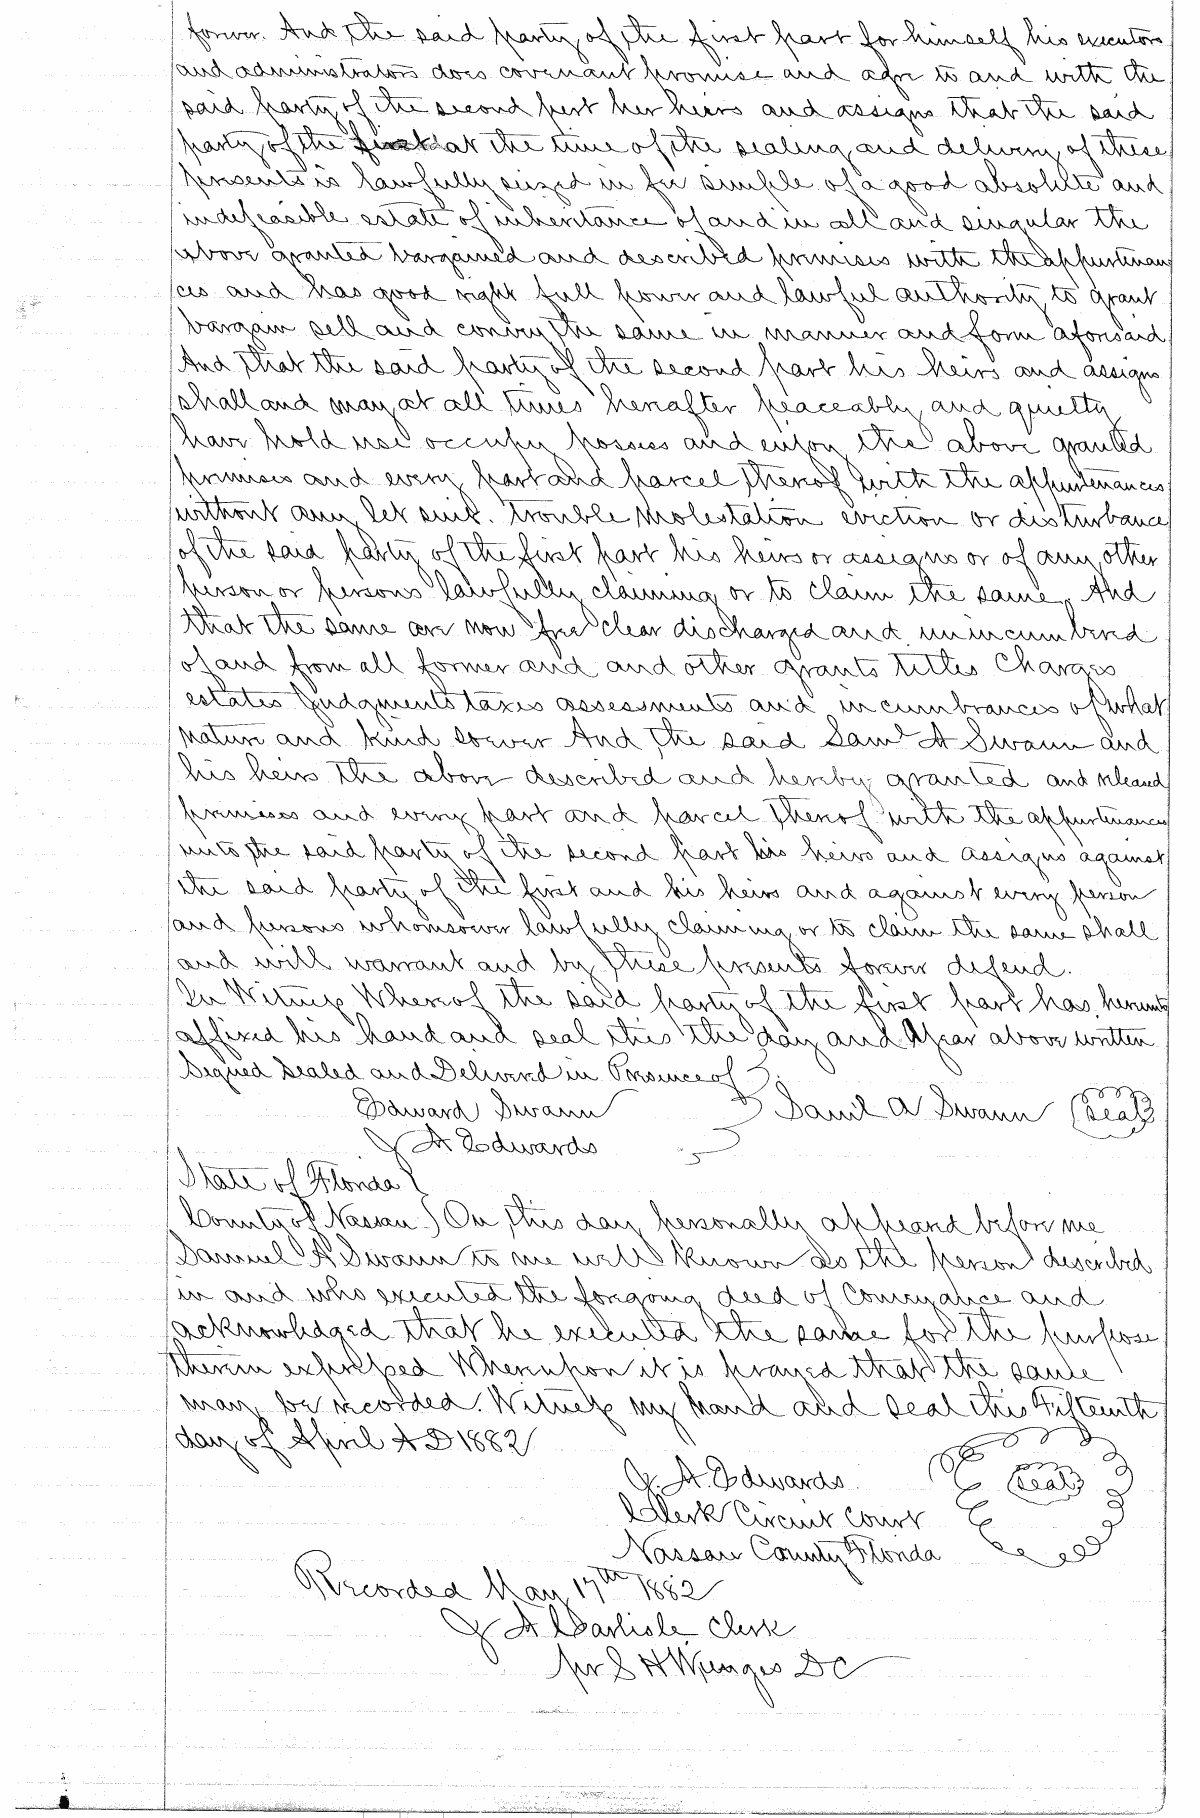 forever. And the said party of the first part for himself his executors
and administrators does covenant promise and agre to and with the
said party of the second part her heirs and assigns that the said
party of the first at the time of the sealing and delivery of these
presents is lawfully seized in fee simple of a good absolute and
indefeasible estate of inheritance of and in all and singular the
above granted bargained and described premises with the appurtenan
ces and has good right full power and lawful authority to grant
bargain sell and convey the same in manner and form aforesaid
And that the said party of the second part his heirs and assigns
shall and may at all times hereafter peaceably and quietly
have hold use occupy possess and enjoy the above granted
premises and every part and parcel thereof with the appurtenances
without any let suit. trouble molestation eviction or disturbance
of the said party of the first part his heirs or assigns or of any other
person or persons lawfully claiming or to claim the same, And
that the same are now free clear discharged and unincumbered
of and from all former and and other grants titles Charges
estates Judgments taxes assessments and incumbrances of what
nature and kind soever And the said Saml A Swann and
his heirs the above described and hereby granted and released
premises and every part and parcel thereof with the appurtenances
unto the said party of the second part his heirs and assigns against
the said party of the first and his heirs and against every person
and persons whomsoever lawfully claiming or to claim the same shall
and will warrant and by these presents forever defend.
In Witness Whereof the said party of the first part has hereunto
affixed his hand and seal this the day and Year above written
Signed Sealed and Delivered in Presence of
Edward Swann Saml A Swann (Seal)
J A Edwards
State of Florida
County of Nassau) On this day personally appeard before me
Samuel A Swann to me well known as the person described
in and who executed the forgoing deed of Conveyance and
acknowledged that he executed the same for the purpose
therein expressed Whereupon it is prayed that the same
may be recorded. Witness my hand and seal this Fifteenth
day of April A D 1882
J. A. Edwards (Seal)
Clerk Circuit Court
Nassau County Florida
Recorded May 17th 1882
J A Carlisle Clerk
pr S H DC